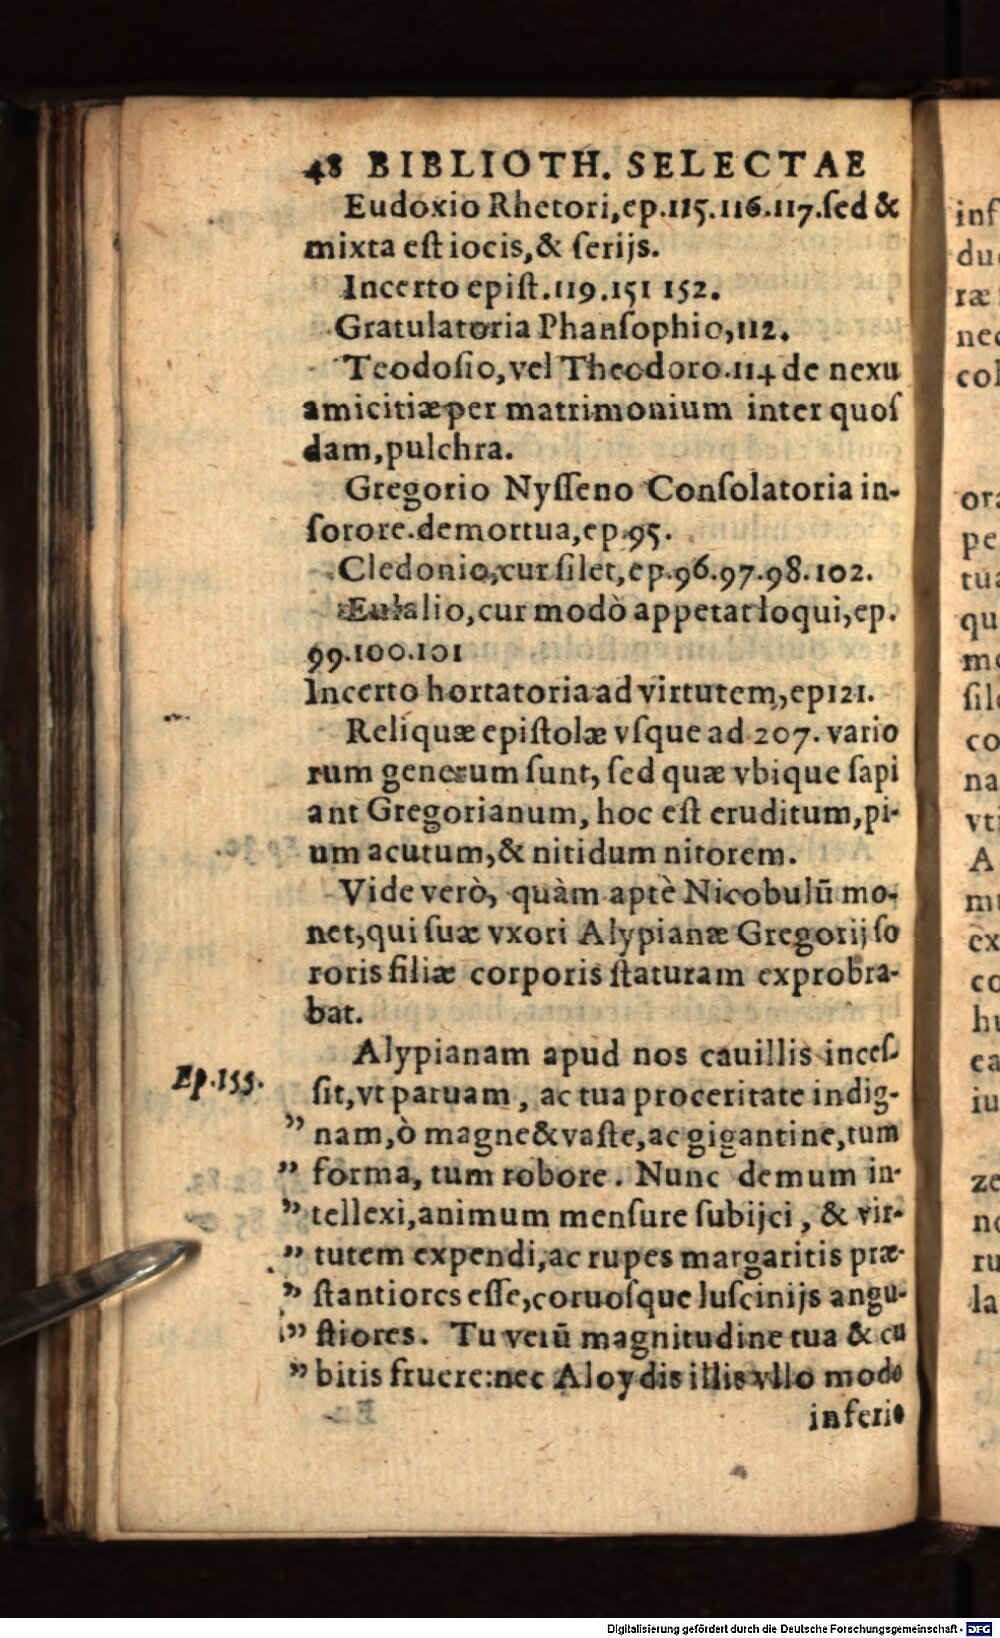 48 BIBLIOTH. SELECTAE
Eudoxio Rhetori, ep.115.116.117.ſed &
mixta eſt iocis, & ſerijs.
Incerto epiſt.119.151 152.
Gratulatoria Phanſophio, 112.
Teodoſio, vel Theodoro.114 de nexu
amicitiæ per matrimonium inter quoſ
dam, pulchra.
Gregorio Nyſſeno Conſolatoria in-
ſorore.demortua, ep.95.
Cledonio, cur ſilet, ep.96.97.98.102.
Eulalio, cur modò appetat loqui, ep.
99.100.101
Incerto hortatoria ad virtutem, ep121.
Reliquæ epiſtolæ vſque ad 207. vario
rum generum ſunt, ſed quæ vbique ſapi
ant Gregorianum, hoc eſt eruditum, pi-
um acutum, & nitidum nitorem.
Vide verò, quàm aptè Nicobulū mo-
net, qui ſuæ vxori Alypianæ Gregorij ſo
roris filiæ corporis ſtaturam exprobra-
bat.
Alypianam apud nos cauillis inceſ-
Ep.155. ſit, vt paruam, ac tua proceritate indig-
„ nam, ò magne & vaſte, ac gigantine, tum
„ forma, tum robore. Nunc demum in-
„ tellexi, animum menſure ſubijci, & vir-
„ tutem expendi, ac rupes margaritis præ-
„ ſtantiores eſſe, coruoſque luſcinijs angu-
„ ſtiores. Tu verū magnitudine tua & cu
„ bitis fruere: nec Aloydis illis vllo modo
inferio
inf
du
ræ
nec
col
ora
pe
tua
qu
mo
ſile
co
na
vti
A
mu
ex
co
hu
ea
iu
ze
no
ru
la
Digitalisierung gefördert durch die Deutsche Forschungsgemeinschaft - DFG